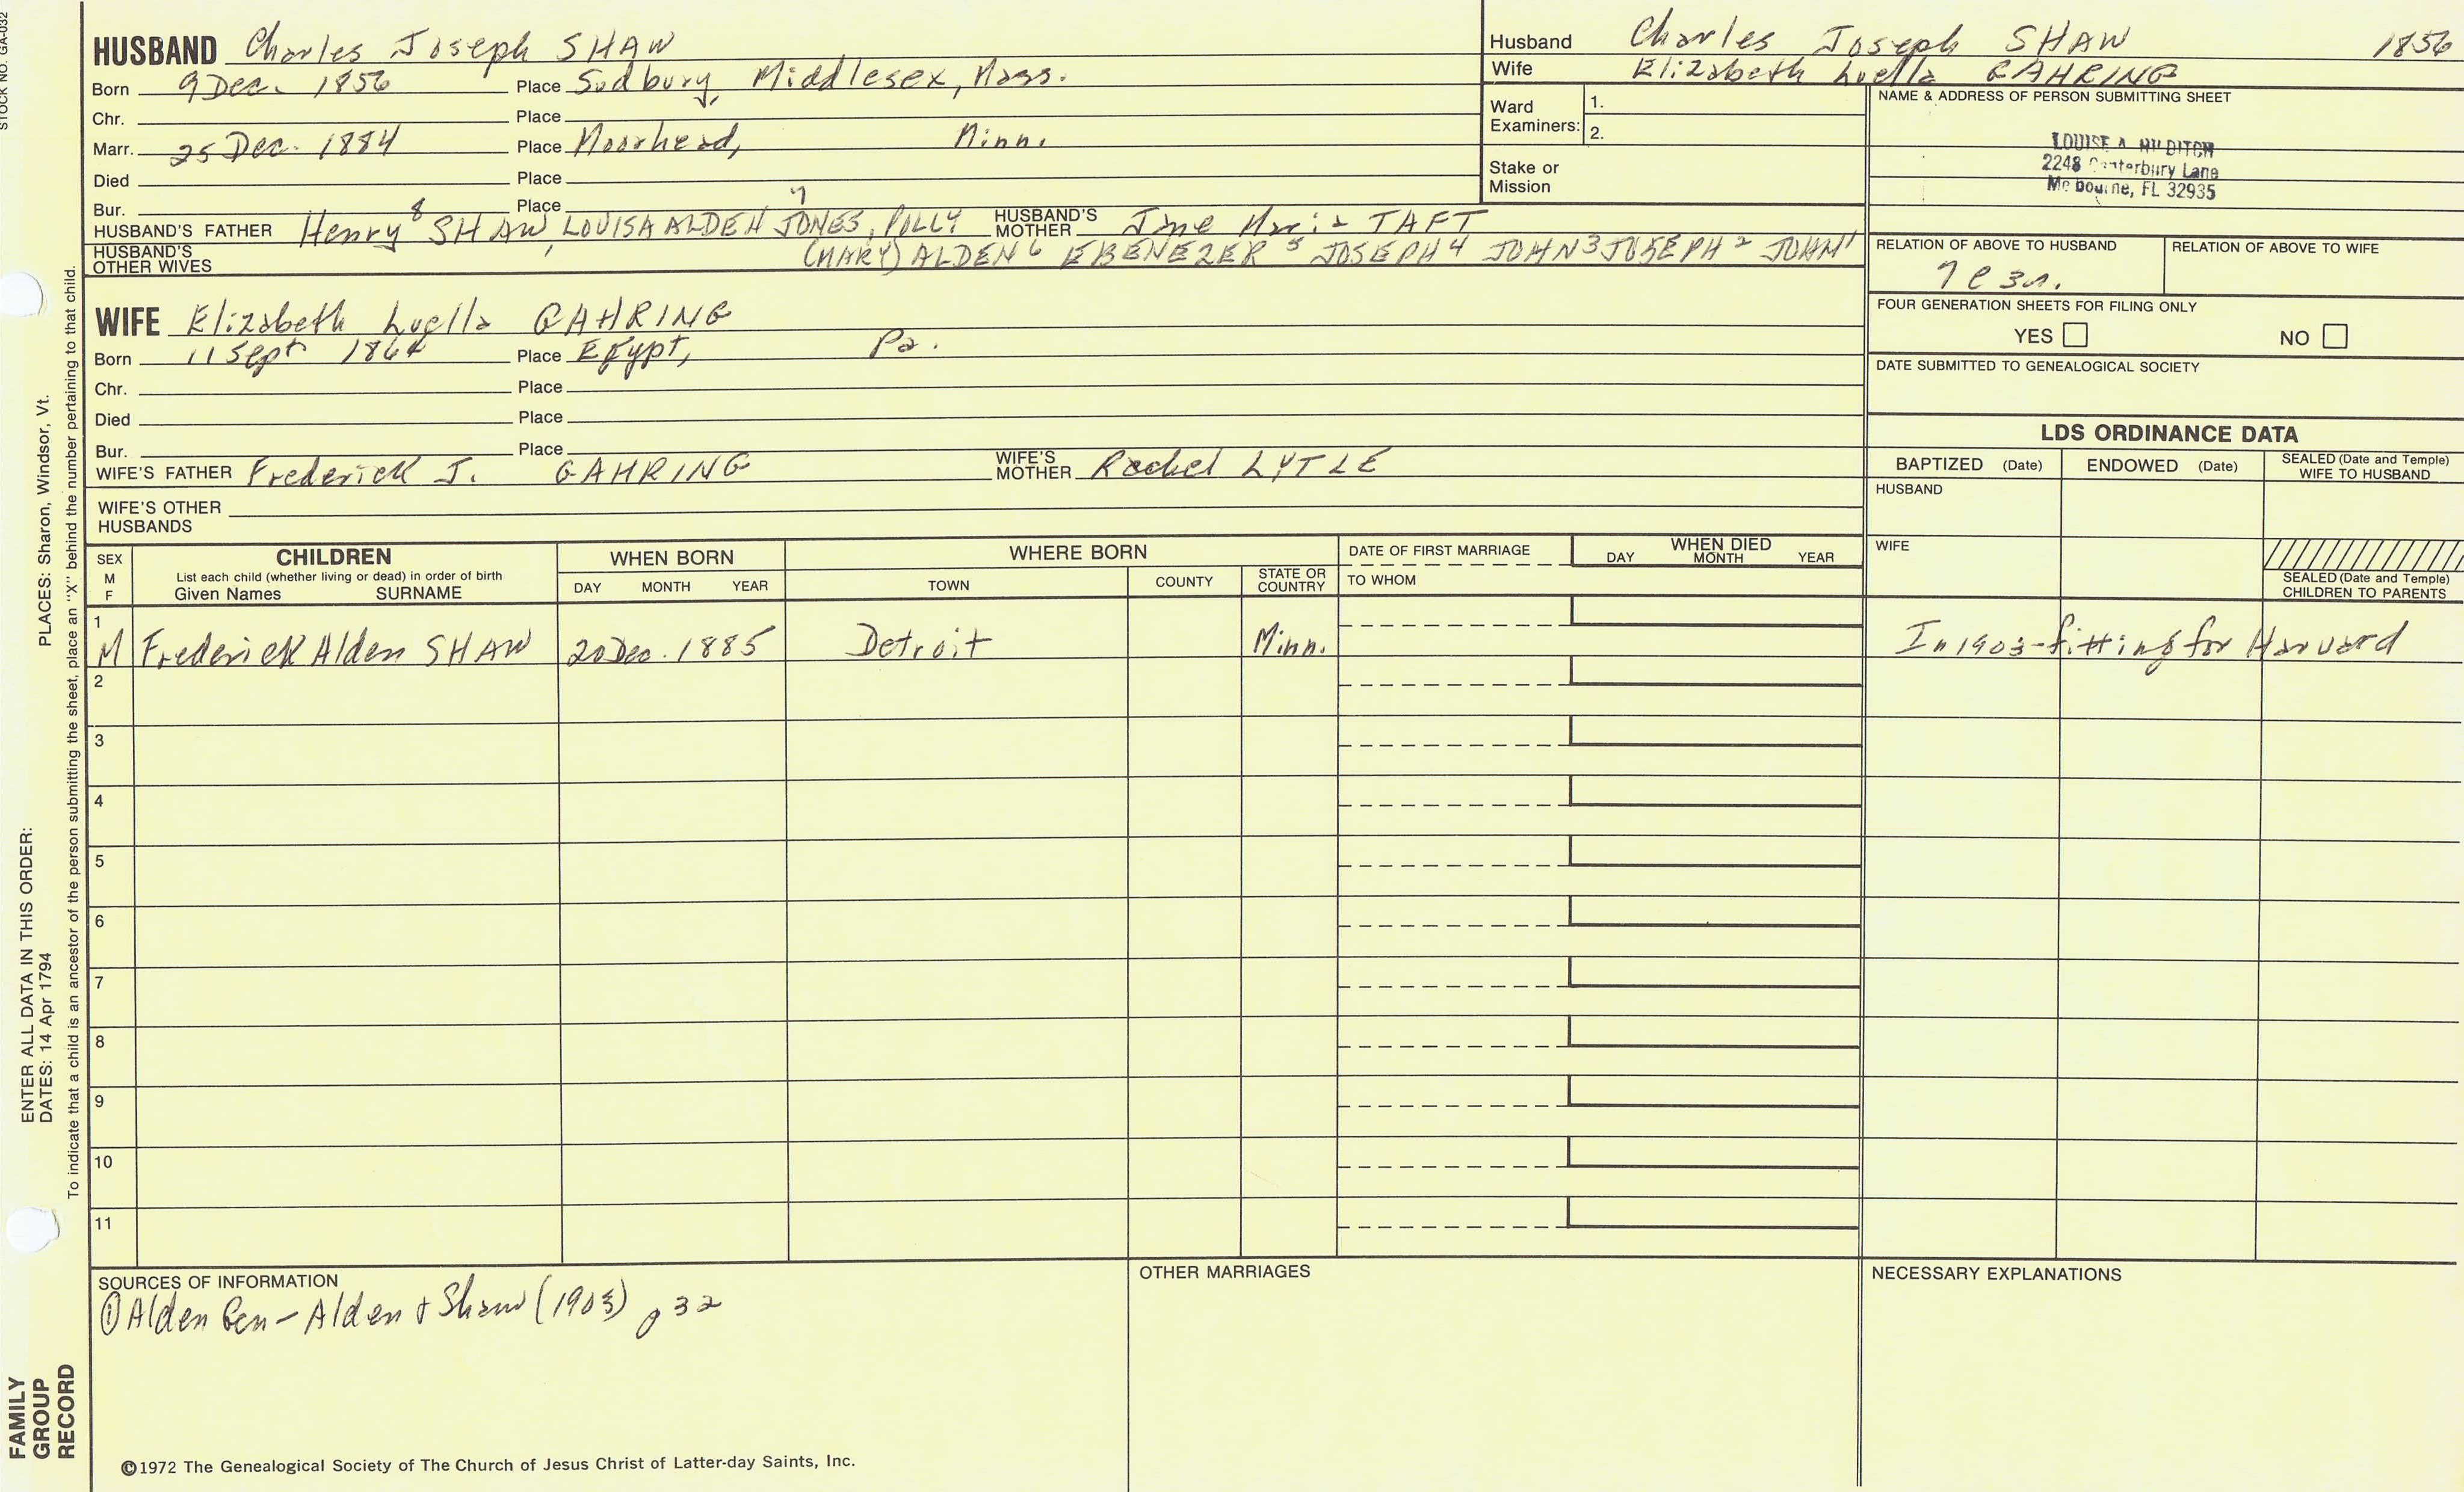 STOCK NO. GA-032
HUSBAND Charles Joseph SHAW
Born 9 Dec. 1856 Place Sudbury, Middlesex, Mass.
Chr. Place
Marr. 25 Dec. 1884 Place Moorhead, Minn.
Died Place
Bur. Place
HUSBAND'S FATHER Henry 8 SHAW, LOUISA ALDEN JONES 7, POLLY HUSBAND'S MOTHER Jane Maria TAFT
HUSBAND'S OTHER WIVES (MARY) ALDEN 6 EBENEZER 5 JOSEPH 4 JOHN 3 JOSEPH 2 JOHN 1
WIFE Elizabeth Luella GAHRING
Born 11 Sept 1864 Place Egypt, Pa.
Chr. Place
Died Place
Bur. Place
WIFE'S FATHER Frederick J. GAHRING WIFE'S MOTHER Rachel LYTLE
WIFE'S OTHER HUSBANDS
Husband Charles Joseph SHAW 1856
Wife Elizabeth Luella GAHRING
Ward Examiners: 1.
2.
Stake or Mission
NAME & ADDRESS OF PERSON SUBMITTING SHEET
LOUISE A
2248 Canterbury Lane
Melbourne, FL 32935
RELATION OF ABOVE TO HUSBAND RELATION OF ABOVE TO WIFE
FOUR GENERATION SHEETS FOR FILING ONLY
YES NO
DATE SUBMITTED TO GENEALOGICAL SOCIETY
LDS ORDINANCE DATA
BAPTIZED (Date) ENDOWED (Date) SEALED (Date and Temple) WIFE TO HUSBAND
HUSBAND
WIFE
SEALED (Date and Temple) CHILDREN TO PARENTS
SEX M F CHILDREN WHEN BORN WHERE BORN DATE OF FIRST MARRIAGE WHEN DIED
List each child (whether living or dead) in order of birth
Given Names SURNAME DAY MONTH YEAR TOWN COUNTY STATE OR COUNTRY TO WHOM DAY MONTH YEAR
1 M Frederick Alden SHAW 20 Dec. 1885 Detroit Minn. In 1903-fitting for Harvard
2
3
4
5
6
7
8
9
10
11
SOURCES OF INFORMATION
① Alden Gen - Alden & Shaw (1903) p 32
OTHER MARRIAGES
NECESSARY EXPLANATIONS
©1972 The Genealogical Society of The Church of Jesus Christ of Latter-day Saints, Inc.
ENTER ALL DATA IN THIS ORDER:
DATES: 14 Apr 1794 PLACES: Sharon, Windsor, Vt.
To indicate that a child is an ancestor of the person submitting the sheet, place an "X" behind the number pertaining to that child.
FAMILY
GROUP
RECORD